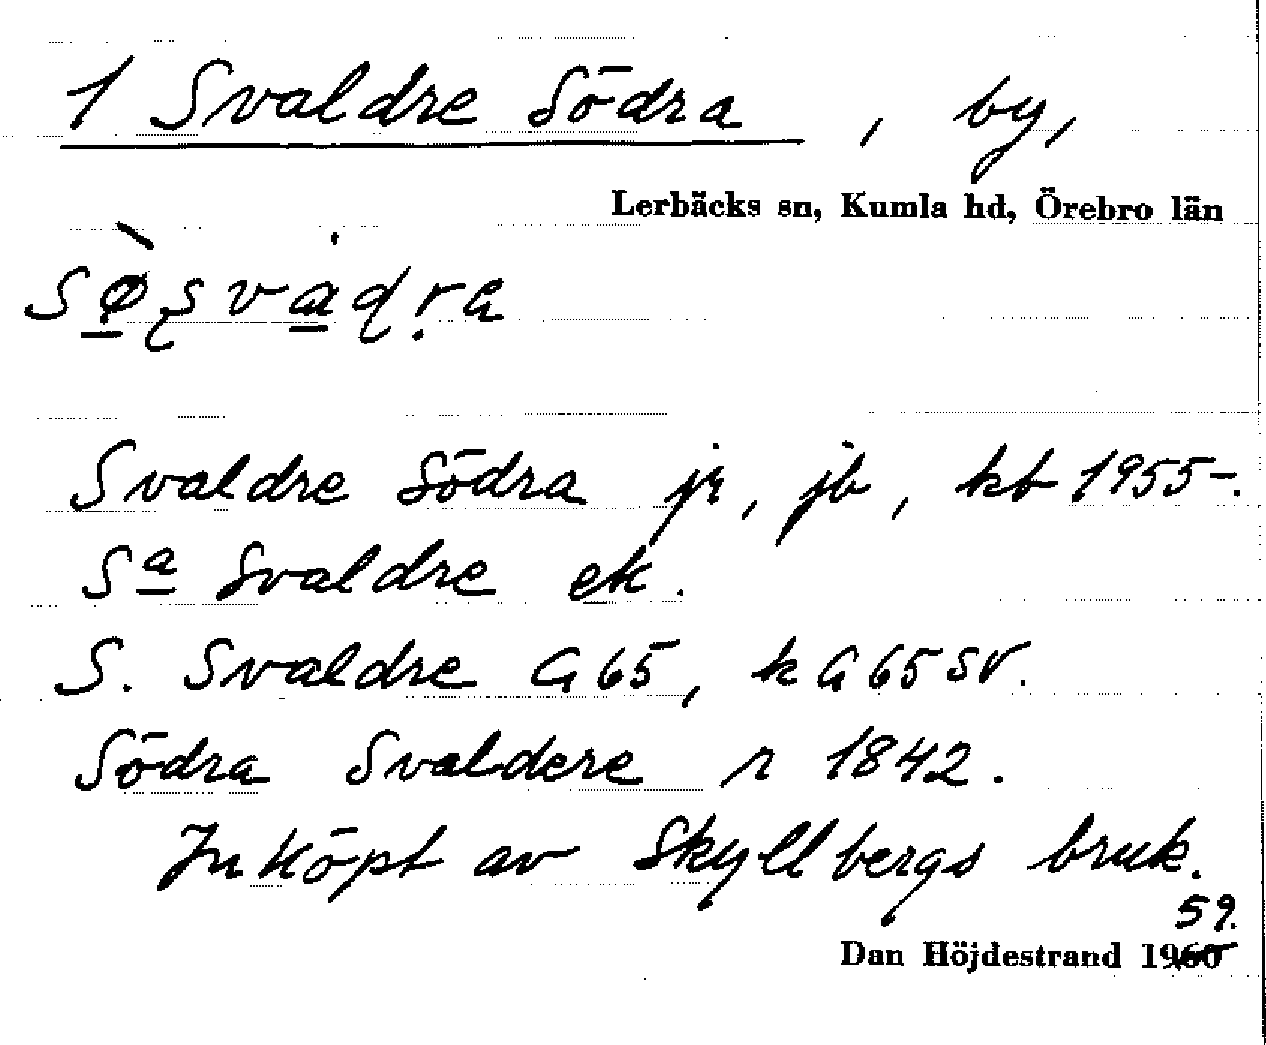 1 Svaldre Södra, by,
Lerbäcks sn, Kumla hd, Örebro län
Svaldre Södra jr, jb, kb 1955-.
Sa Svaldre ek.
S. Svaldre G 65, k G 65 SV.
Södra Svaldere r 1842.
Inköpt av Skyllbergs bruk.
59.
Dan Höjdestrand 1960